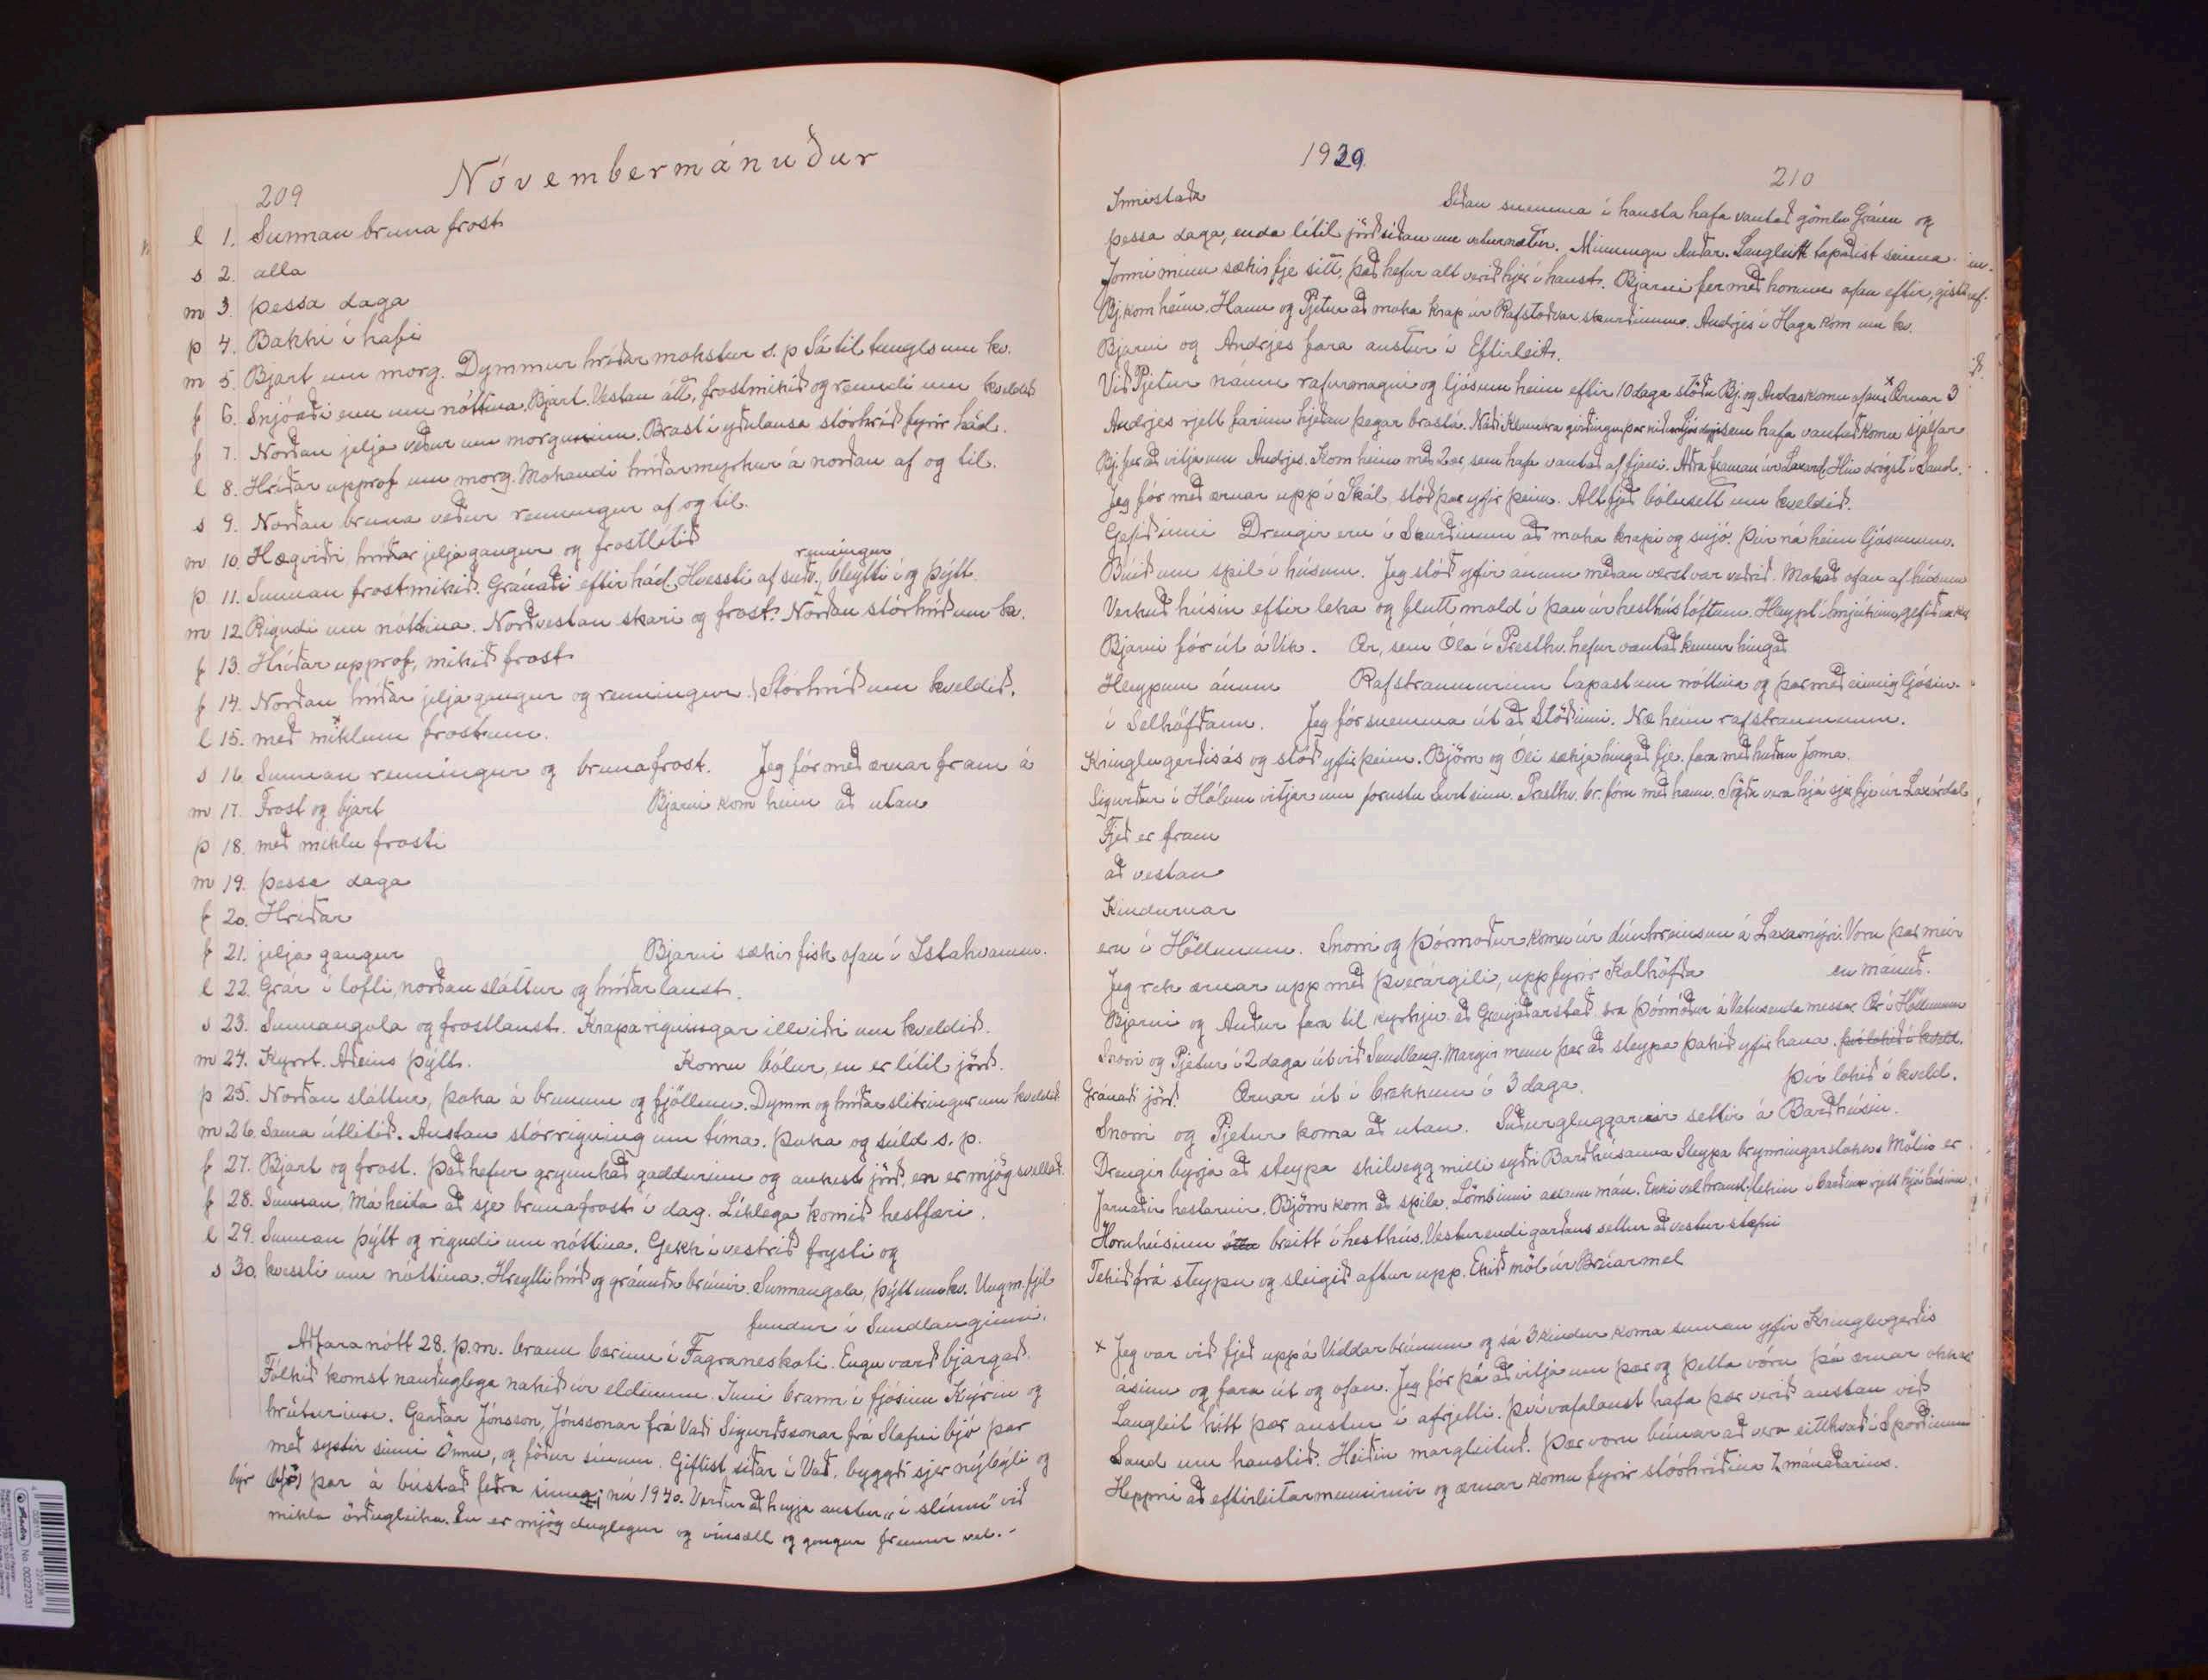 Nóvembermánuður
209
l 1. Sunnan bruna frost
s 2. alla
m 3. þessa daga
þ 4. Bakki í hafi
m 5. Bjart um morg. Dymmur hríðar mokstur s.p Sá til tungls um kv.
f 6. Snjóaði enn um nóttina. Bjart. Vestan átt, frostmikið og renndi um kveldið
f 7. Norðan jelja veður um morguninn. Brast í yðulausa stórhríð fyrir hád.
l 8. Hríðar upprof um morg. Mokandi hríðarmyrkur á norðan af og til.
s 9. Norðan bruna veður renningur af og til.
m 10. Hægviðri hríðar jeljagangur og frostlítið
renningur
þ 11. Sunnan frostmikið. Gránaði eftir hád. Hvessti af suðv., bleytti í og þýtt.
m 12. Rigndi um nóttina. Norðvestan skari og frost. Norðan stórhríð um kv.
f 13. Hríðar upprof, mikið frost
f 14. Norðan hríðar jeljagangur og renningur. Stórhríð um kveldið.
l 15. með miklum frostum.
s 16. Sunnan renningur og brunafrost. Jeg fór með ærnar fram á
m 17. Frost og bjart Bjarni kom heim að utan
þ 18. með miklu frosti
m 19. þessa daga
f 20. Hríðar
f 21. jelja gangur Bjarni sækir fisk ofan í Ystahvamm.
l 22. Grár í lofti, norðan sláttur og hríðarlaust.
s 23. Sunnangola og frostlaust. Kraparigningar illviðri um kveldið.
m 24. Kyrrt. Aðeins þýtt. Komu bólur, en er lítil jörð.
þ 25. Norðan sláttur, þoka á brúnum og fjöllum. Dymm og hríðarslitringur um kveldið
m 26. Sama útlitið. Austan stórrigning um tíma. Þoka og súld s.p.
f 27. Bjart og frost. Það hefur grynnkað gaddurinn og aukist jörð, en er mjög svellað.
f 28. Sunnan. Má heita að sje brunafrost í dag. Líklega komið hestfæri.
l 29. Sunnan þýtt og rigndi um nóttina. Gekk í vestrið frysti og
s 30. hvessti um nóttina. Hreytti hríð og gránuðu brúnir. Sunnangola, þýtt um kv. Ungm.fjel
fundur í Sundlauginni.
Aðfaranótt 28. þ.m. brann bærinn í Fagraneskoti. Engu varð bjargað.
Fólkið komst nauðuglega nakið úr eldinum. Inni brann í fjósinu Kýrin og
hrúturinn. Garðar Jónsson, Jónssonar frá Vaði Sigurðssonar frá Stafni bjó þar
með systir sinni Önnu, og föður sínum. Giftist síðar í Vað, byggði sjer nýbýli og
býr þar á bústað feðra sinna nú 1940. Verður að heyja austur „í slínu" við
mikla örðugleika. En er mjög duglegur og vinsæll og gengur fremur vel.-
1929
210
Innistaða Síðan snemma í hausta hafa vantað gömlu Gránu og
þessa daga, enda lítil jörð síðan um veturnætur. Minningu Auðar. Langleit tapaðist seinna.
Jonni minn sækir fje sitt, það hefur alt verið hjer í haust. Bjarni fer með honum ofan eftir, gistir
Bj. kom heim. Hann og Pjetur að moka krap úr Rafstöðvar skurðinum. Andrjes í Haga kom um kv.
Bjarni og Andrjes fara austur í Eftirleit.
Við Pjetur náum rafurmagni og ljósum heim eftir 10 daga stöðu Bj. og Andrjes komu ofan. Ærnar 3
Andrjes rjett farinn hjeðan þegar brast á. Náði Klambra girðingu þar niður sem hafa vantað komu sjálfar
Bj. fer að vitja um Andrjes. Kom heim með 2 ær, sem hafa vantað af fjalli. Aðra framan úr Laxard. Hin drógst í Sand.
Jeg fór með ærnar upp í Skál, stóð þar yfir þeim. Alt fjeð bólusett um kveldið.
Gefið inni Drengir eru í Skurðinum að moka krapi og snjó. Þeir ná heim ljósunum.
Búið um spil í húsum. Jeg stóð yfir ánum meðan verst var veðrið. Mokað ofan af húsum
Verkuð húsin eftir leka og flutt mold í þau úr hesthústóftum. Hleypt gefið um kv.
Bjarni fór út á Vík. Ær, sem Óla í Presthv. hefur vantað kemur hingað
Hleypum ánum Rafstraumurinn tapast um nóttina og þar með einnig ljósin.
í Selhöfðann. Jeg fór snemma út að Stöðinni. Næ heim rafstraumnum.
Kringlugerðisás og stóð yfir þeim. Björn og Óli sækja hingað fje. fara með Jonna.
Sigurður í Hólum vitjar um forustu Surt sinn. Presthv. br. fóru með hann. Sögðu vera hjá sjer fje úr Laxárdal
Fjeð er fram
að vestan
Kindurnar
eru í Höllunum. Snorri og Þórmóður komu úr dúnhreinsun á Laxamýri. Voru þar meir
Jeg rek ærnar upp með Þverárgili, upp fyrir Kalhöfða en mánuð.
Bjarni og Auður fara til kyrkju að Grenjaðarstað sra Þórmóður á Vatnsenda messar. Ær í Höllunum
Snorri og Pjetur í 2 daga út við Sundlaug. Margir menn þar að steypa þakið yfir hana. því lokið í kveld.
Gránaði jörð. Ærnar út í brekkum í 3 daga. því lokið í kveld.
Snorri og Pjetur koma að utan. Suðurgluggarnir settir á Barðhúsin.
Drengir byrja að steypa skilvegg milli syðri Barðhúsanna Steypa brynningarstokk. Mölin er
Járnaðir hestarnir. Björn kom að spila. rjett hjá húsinu
Hornhúsinu breitt í hesthús. Vesturendi garðans settur að vestur stafni
Tekið frá steypu og slegið aftur upp. Ekið möl úr Brúarmel
x Jeg var við fjeð uppá Víddarbrúnum og sá 3 kindur koma sunnan yfir Kringlugerðis
ásinn og fara út og ofan. Jeg fór þá að vitja um þær og þetta vóru þá ærnar okkar
Langleit hitt þær austur í afrjetti. Því vafalaust hafa þær verið austan við
Sand um haustið. Heiðin margleituð. Þær voru búnar að vera eitthvað í Spórðinum
Heppni að eftirleitarmennirnir og ærnar komu fyrir stórhríðina 7. mánaðarins.